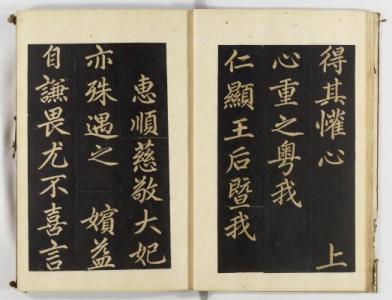 得其懽心　　上
心重之粵我
仁顯王后暨我
惠順慈敬大妃
亦殊遇之　嬪益
自謙畏尤不喜言